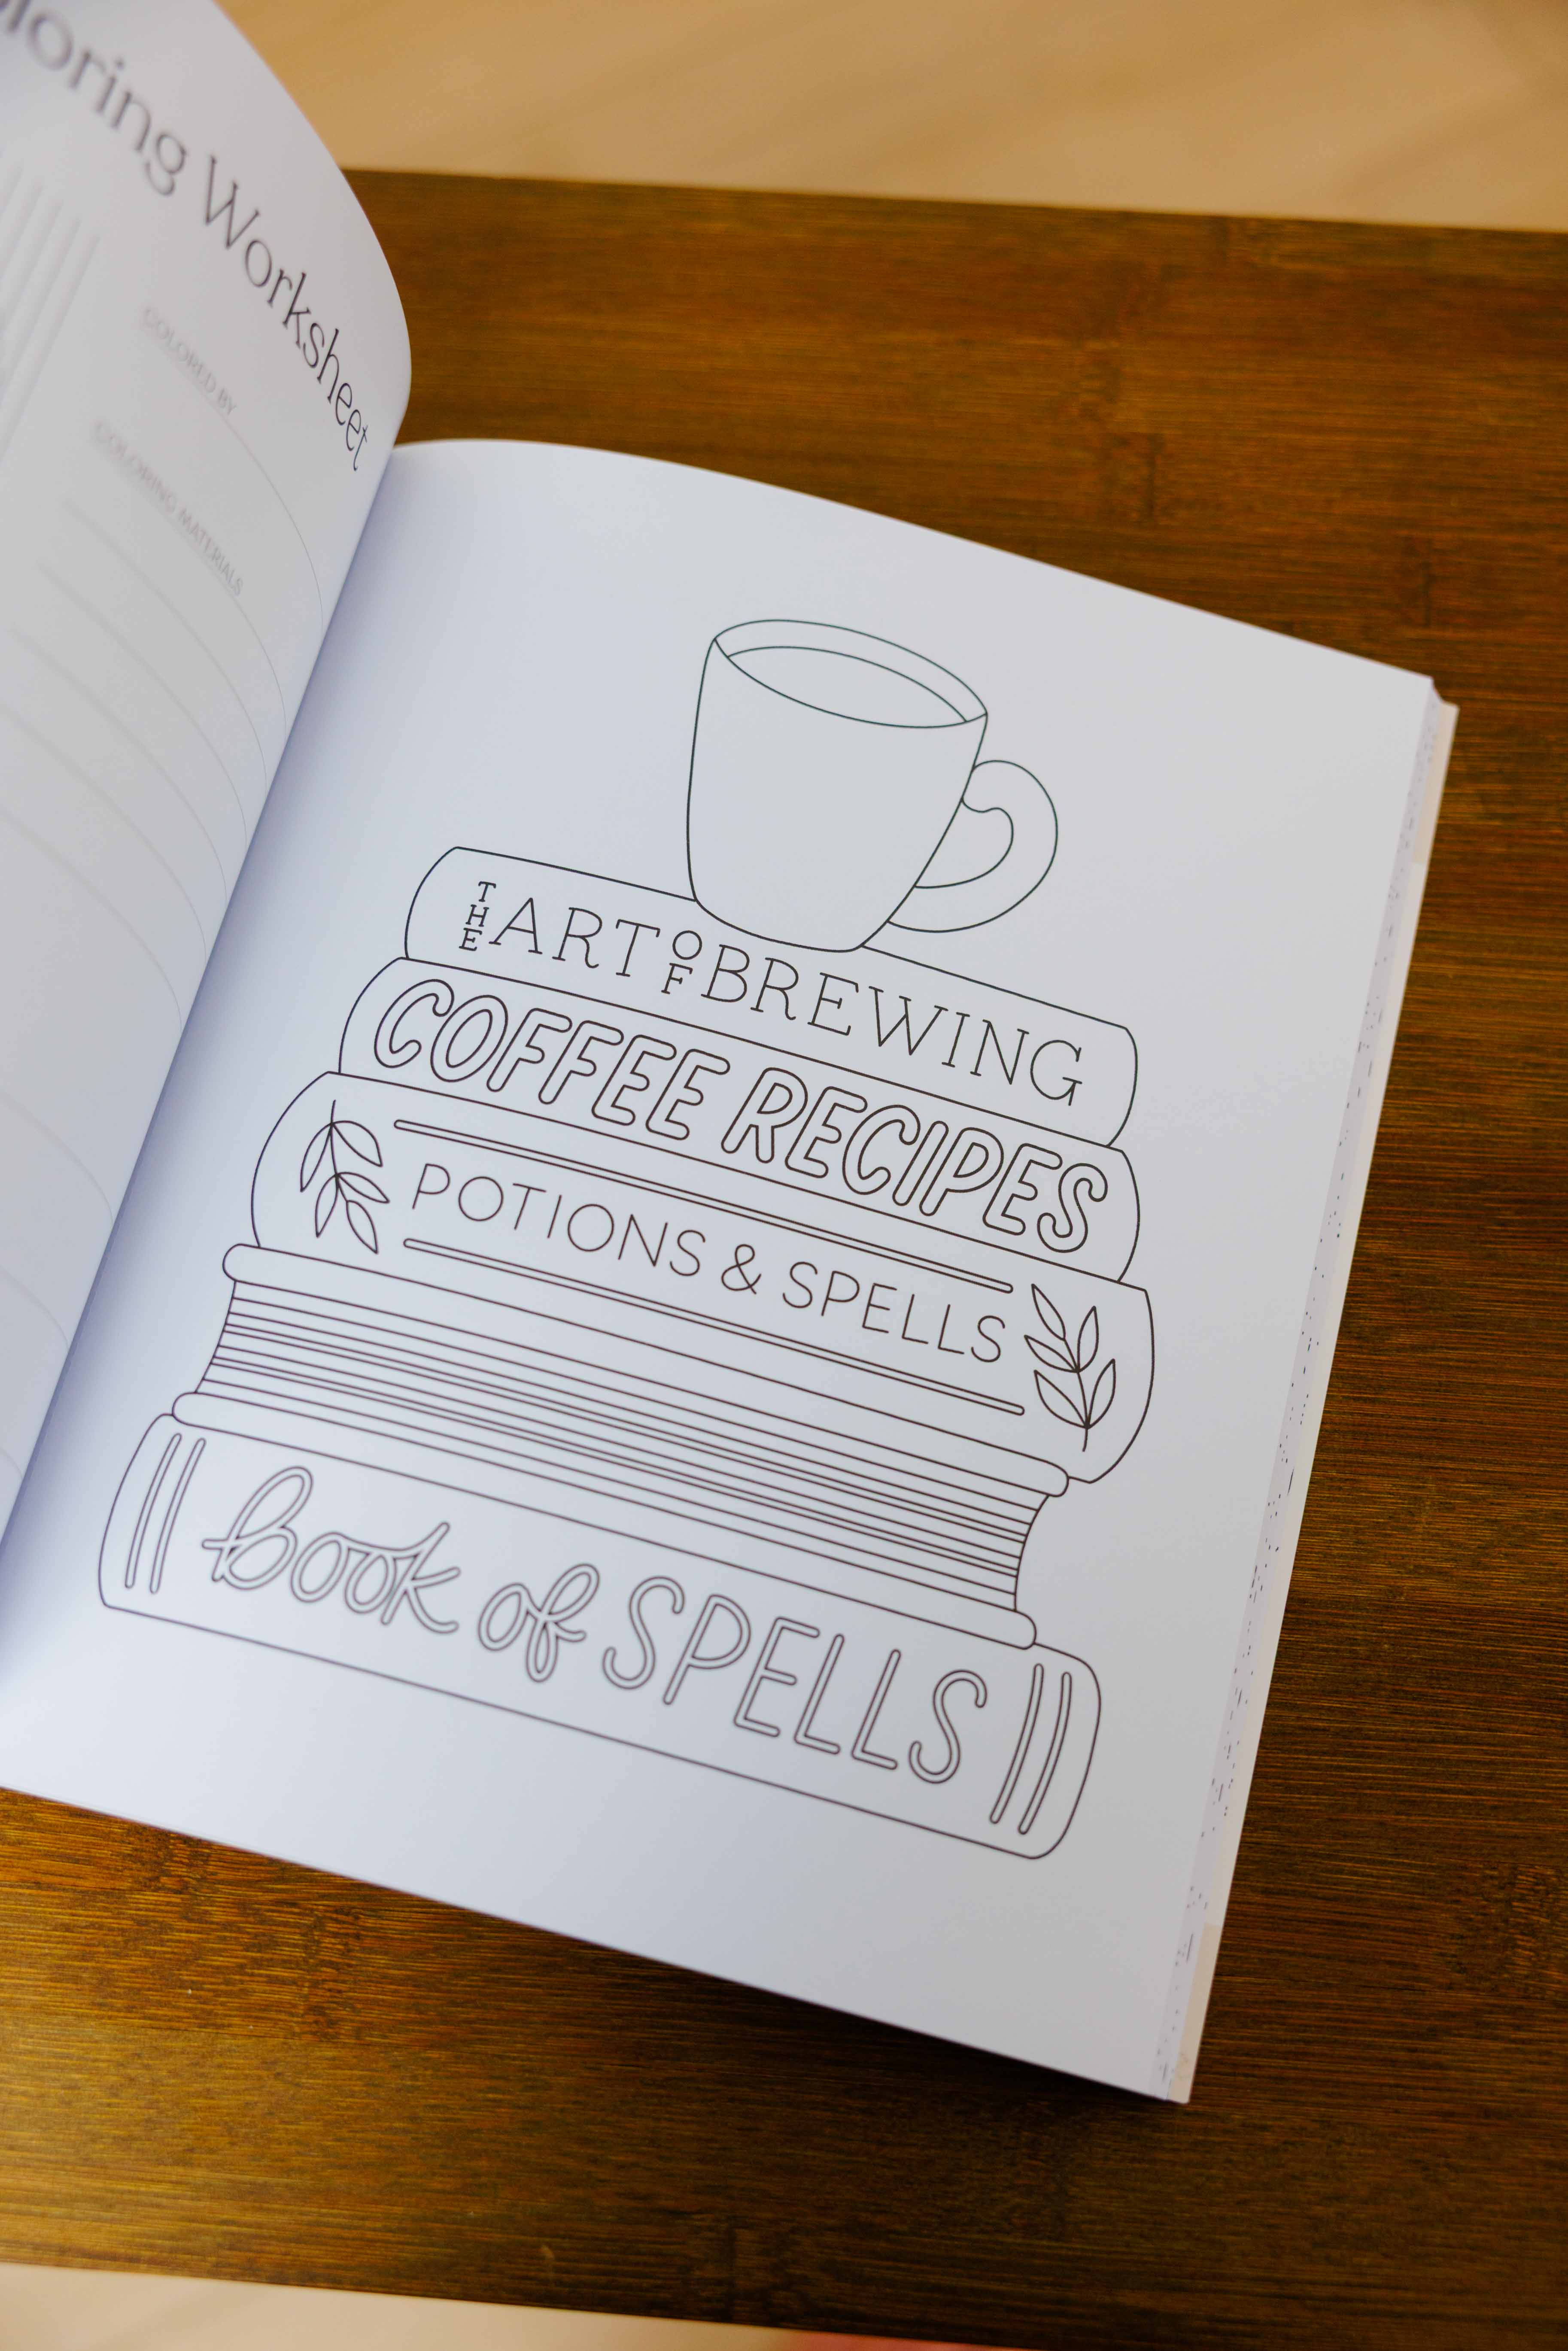 oloring Worksheet
COLORED BY
COLORING MATERIALS
THE ART OF BREWING
COFFEE RECIPES
POTIONS & SPELLS
Book of SPELLS